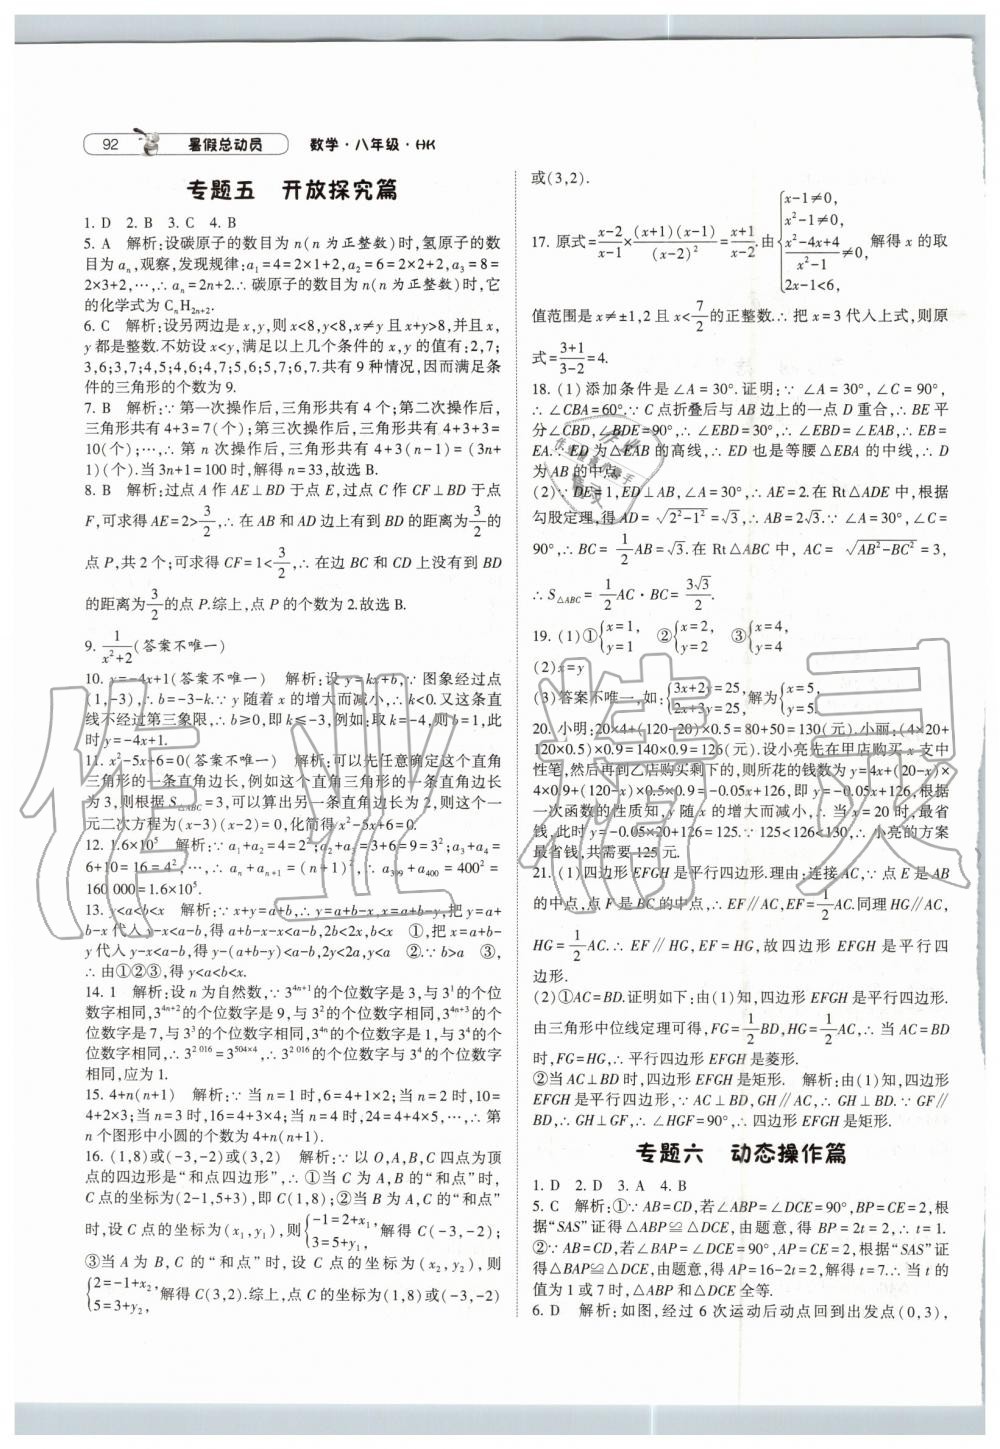 92 暑假总动员 数学·八年级·HK
专题五 开放探究篇
1. D 2. B 3. C 4. B
5. A 解析:设碳原子的数目为 n(n 为正整数)时,氢原子的数
目为 aₙ,观察,发现规律:a₁=4=2×1+2,a₂=6=2×2+2,a₃=8=
2×3+2,…,∴ aₙ=2n+2.∴ 碳原子的数目为 n(n 为正整数)时,它
的化学式为 CₙH₂ₙ₊₂.
6. C 解析:设另两边是 x,y,则 x<8,y<8,x≠y 且 x+y>8,并且 x,
y 都是整数.不妨设 x<y,满足以上几个条件的 x,y 的值有:2,7;
3,6;3,7;4,5;4,6;4,7;5,6;5,7;6,7.共有 9 种情况,因而满足条
件的三角形的个数为 9.
7. B 解析:∵ 第一次操作后,三角形共有 4 个;第二次操作后,三
角形共有 4+3=7(个);第三次操作后,三角形共有 4+3+3=
10(个);…,∴ 第 n 次操作后,三角形共有 4+3(n-1)=(3n+
1)(个).当 3n+1=100 时,解得 n=33,故选 B.
8. B 解析:过点 A 作 AE⊥BD 于点 E,过点 C 作 CF⊥BD 于点
F,可求得 AE=2>3/2,∴ 在 AB 和 AD 边上有到 BD 的距离为 3/2 的
点 P,共 2 个;可求得 CF=1<3/2,∴ 在边 BC 和 CD 上没有到 BD
的距离为 3/2 的点 P.综上,点 P 的个数为 2.故选 B.
9. 1/(x²+2)(答案不唯一)
10. y=-4x+1(答案不唯一) 解析:设 y=kx+b,∵ 图象经过点
(1,-3),∴ b=-3-k.∵ y 随着 x 的增大而减小,∴ k<0.又这条直
线不经过第三象限,∴ b≥0,即 k≤-3,例如:取 k=-4,则 b=1,此
时 y=-4x+1.
11. x²-5x+6=0(答案不唯一) 解析:可以先任意确定这个直角
三角形的一条直角边长,例如这个直角三角形的一条直角边长
为 3,则根据 S△ABC=3,可以算出另一条直角边长为 2,则这个一
元二次方程为(x-3)(x-2)=0,化简得 x²-5x+6=0.
12. 1.6×10⁵ 解析:∵ a₁+a₂=4=2²;a₂+a₃=3+6=9=3²;a₃+a₄=
6+10=16=4²,…,∴ aₙ+aₙ₊₁=(n+1)²,∴ a₃₉₉+a₄₀₀=400²=
160 000=1.6×10⁵.
13. y<a<b<x 解析:∵ x+y=a+b,∴ y=a+b-x,x=a+b-y,把 y=a+
b-x 代入 y-x<a-b,得 a+b-x-x<a-b,2b<2x,b<x ①,把 x=a+b-
y 代入 y-x<a-b,得 y-(a+b-y)<a-b,2y<2a,y<a ②.∵ b>a ③,
∴ 由①②③,得 y<a<b<x.
14. 1 解析:设 n 为自然数,∵ 3⁴ⁿ⁺¹的个位数字是 3,与 3¹的个位
数字相同,3⁴ⁿ⁺²的个位数字是 9,与 3²的个位数字相同,3⁴ⁿ⁺³的个
位数字是 7,与 3³的个位数字相同,3⁴ⁿ的个位数字是 1,与 3⁴的个
位数字相同,∴ 3²⁰¹⁶=3⁵⁰⁴ˣ⁴,∴ 3²⁰¹⁶的个位数字与 3⁴的个位数字
相同,应为 1.
15. 4+n(n+1) 解析:∵ 当 n=1 时,6=4+1×2;当 n=2 时,10=
4+2×3;当 n=3 时,16=4+3×4;当 n=4 时,24=4+4×5,…,∴ 第
n 个图形中小圆的个数为 4+n(n+1).
16. (1,8)或(-3,-2)或(3,2) 解析:∵ 以 O,A,B,C 四点为顶
点的四边形是“和点四边形”,∴ ①当 C 为 A,B 的“和点”时,
C 点的坐标为(2-1,5+3),即 C(1,8);②当 B 为 A,C 的“和点”
时,设 C 点的坐标为(x₁,y₁),则{-1=2+x₁, 3=5+y₁,解得 C(-3,-2);
③当 A 为 B,C 的“和点”时,设 C 点的坐标为(x₂,y₂),则
{2=-1+x₂, 5=3+y₂,解得 C(3,2).综上,点 C 的坐标为(1,8)或(-3,-2)
或(3,2).
17. 原式=(x-2)/(x-1)×(x+1)(x-1)/(x-2)²=(x+1)/(x-2).由{x-1≠0, x²-1≠0, (x²-4x+4)/(x²-1)≠0, 2x-1<6,解得 x 的取
值范围是 x≠±1,2 且 x<7/2 的正整数.∴ 把 x=3 代入上式,则原
式=(3+1)/(3-2)=4.
18. (1)添加条件是∠A=30°.证明:∵ ∠A=30°,∠C=90°,
∴ ∠CBA=60°.∵ C 点折叠后与 AB 边上的一点 D 重合,∴ BE 平
分∠CBD,∠BDE=90°,∴ ∠EBD=30°,∴ ∠EBD=∠EAB,∴ EB=
EA.∵ ED 为△EAB 的高线,∴ ED 也是等腰△EBA 的中线,∴ D
为 AB 的中点.
(2)∵ DE=1,ED⊥AB,∠A=30°,∴ AE=2.在 Rt△ADE 中,根据
勾股定理,得 AD=√(2²-1²)=√3,∴ AB=2√3.∵ ∠A=30°,∠C=
90°,∴ BC=1/2AB=√3.在 Rt△ABC 中,AC=√(AB²-BC²)=3,
∴ S△ABC=1/2AC·BC=3√3/2.
19. (1)①{x=1, y=1 ②{x=2, y=2 ③{x=4, y=4
(2)x=y
(3)答案不唯一,如:{3x+2y=25, 2x+3y=25,解为{x=5, y=5.
20. 小明:20×4+(120-20)×0.5=80+50=130(元).小丽:(4×20+
120×0.5)×0.9=140×0.9=126(元).设小亮先在甲店购买 x 支中
性笔,然后再到乙店购买剩下的,则所花的钱数为 y=4x+(20-x)×
4×0.9+(120-x)×0.5×0.9=-0.05x+126,即 y=-0.05x+126,根据
一次函数的性质知,y 随 x 的增大而减小,∴ 当 x=20 时,最省
钱,此时 y=-0.05×20+126=125.∵ 125<126<130,∴ 小亮的方案
最省钱,共需要 125 元.
21. (1)四边形 EFGH 是平行四边形.理由:连接 AC,∵ 点 E 是 AB
的中点,点 F 是 BC 的中点,∴ EF∥AC,EF=1/2AC.同理 HG∥AC,
HG=1/2AC.∴ EF∥HG,EF=HG,故四边形 EFGH 是平行四
边形.
(2)①AC=BD.证明如下:由(1)知,四边形 EFGH 是平行四边形.
由三角形中位线定理可得,FG=1/2BD,HG=1/2AC,∴ 当 AC=BD
时,FG=HG,∴ 平行四边形 EFGH 是菱形.
②当 AC⊥BD 时,四边形 EFGH 是矩形. 解析:由(1)知,四边形
EFGH 是平行四边形.∵ AC⊥BD,GH∥AC,∴ GH⊥BD.∵ GF∥
BD,∴ GH⊥GF,∴ ∠HGF=90°,∴ 四边形 EFGH 是矩形.
专题六 动态操作篇
1. D 2. D 3. A 4. B
5. C 解析:①∵ AB=CD,若∠ABP=∠DCE=90°,BP=CE=2,根
据“SAS”证得△ABP≌△DCE,由题意,得 BP=2t=2,∴ t=1.
②∵ AB=CD,若∠BAP=∠DCE=90°,AP=CE=2,根据“SAS”证
得△BAP≌△DCE,由题意,得 AP=16-2t=2,解得 t=7.∴ 当 t 的
值为 1 或 7 时,△ABP 和△DCE 全等.
6. D 解析:如图,经过 6 次运动后动点回到出发点(0,3),
作业精灵